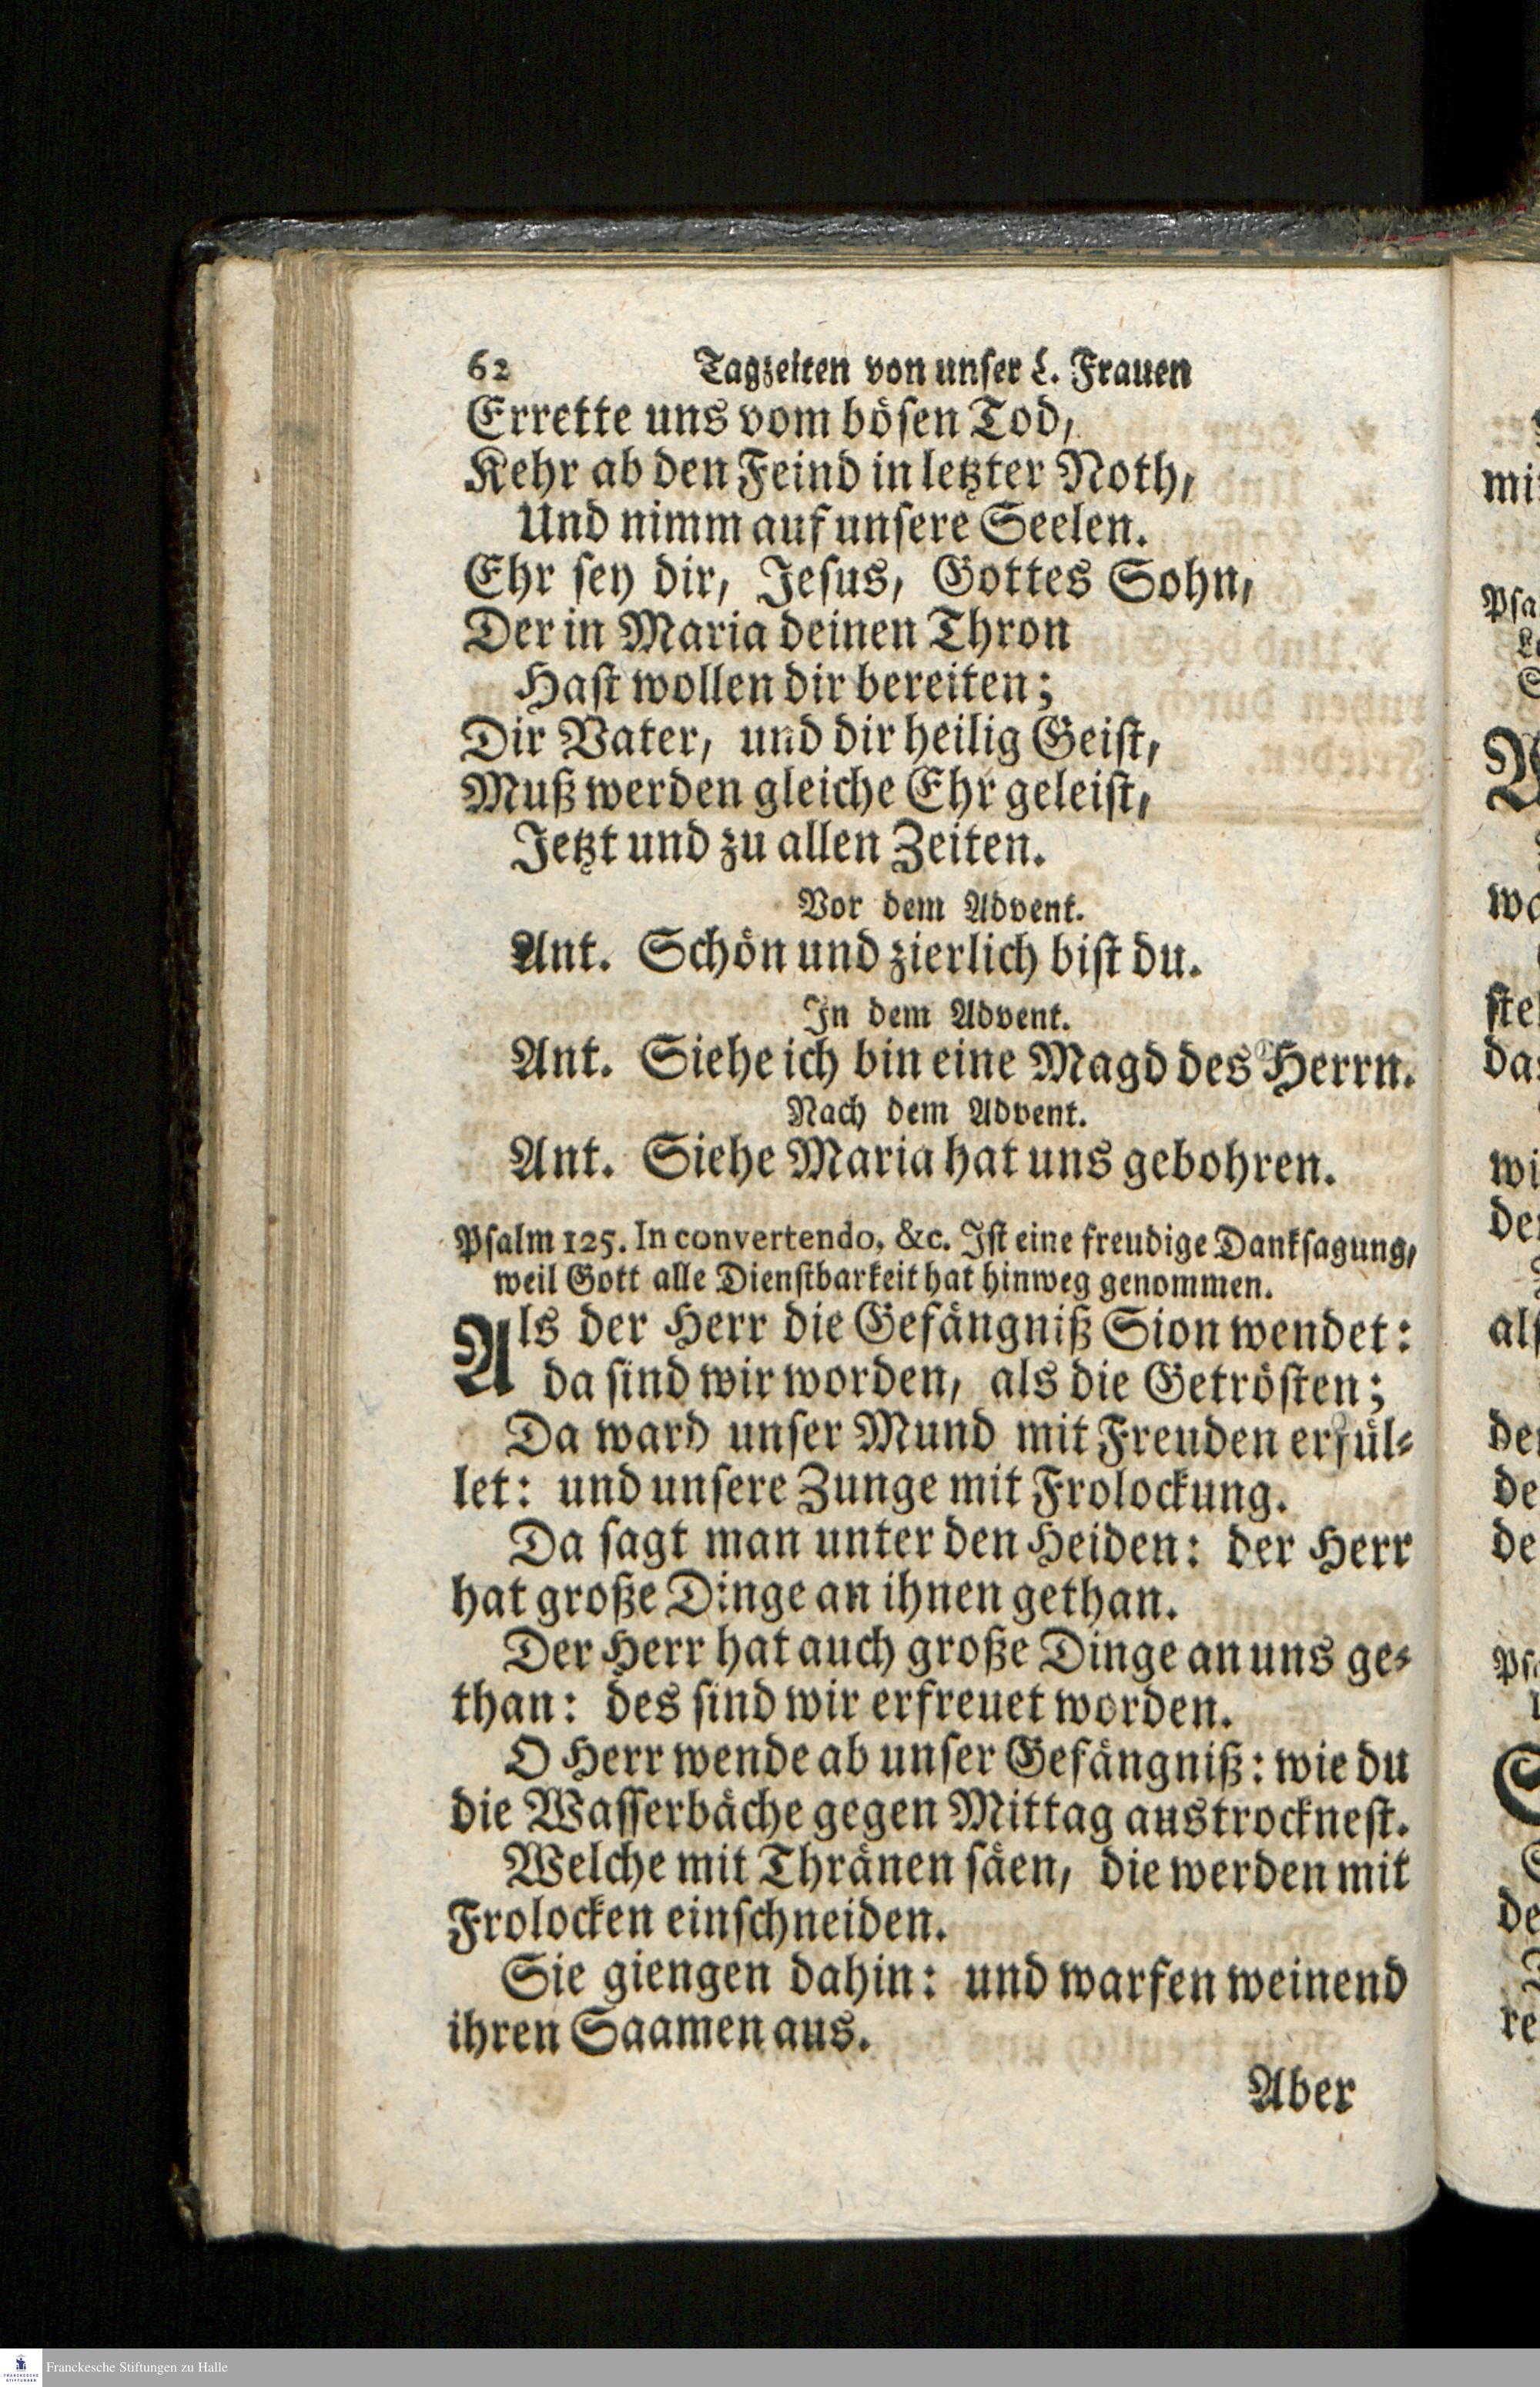 62 Tagzeiten von unser L. Frauen
Errette uns vom bösen Tod,
Kehr ab den Feind in letzter Noth,
Und nimm auf unsere Seelen.
Ehr sey dir, Jesus, Gottes Sohn,
Der in Maria deinen Thron
Hast wollen dir bereiten;
Dir Vater, und dir heilig Geist,
Muß werden gleiche Ehr geleist,
Jetzt und zu allen Zeiten.
Vor dem Advent.
Ant. Schön und zierlich bist du.
In dem Advent.
Ant. Siehe ich bin eine Magd des Herrn.
Nach dem Advent.
Ant. Siehe Maria hat uns gebohren.
Psalm 125. In convertendo, &c. Ist eine freudige Danksagung,
weil Gott alle Dienstbarkeit hat hinweg genommen.
Als der Herr die Gefängniß Sion wendet:
da sind wir worden, als die Getrösten;
Da ward unser Mund mit Freuden erfül-
let: und unsere Zunge mit Frolockung.
Da sagt man unter den Heiden: der Herr
hat große Dinge an ihnen gethan.
Der Herr hat auch große Dinge an uns ge-
than: des sind wir erfreuet worden.
O Herr wende ab unser Gefängniß: wie du
die Wasserbäche gegen Mittag austrocknest.
Welche mit Thränen säen, die werden mit
Frolocken einschneiden.
Sie giengen dahin: und warfen weinend
ihren Saamen aus.
Aber
Franckesche Stiftungen zu Halle